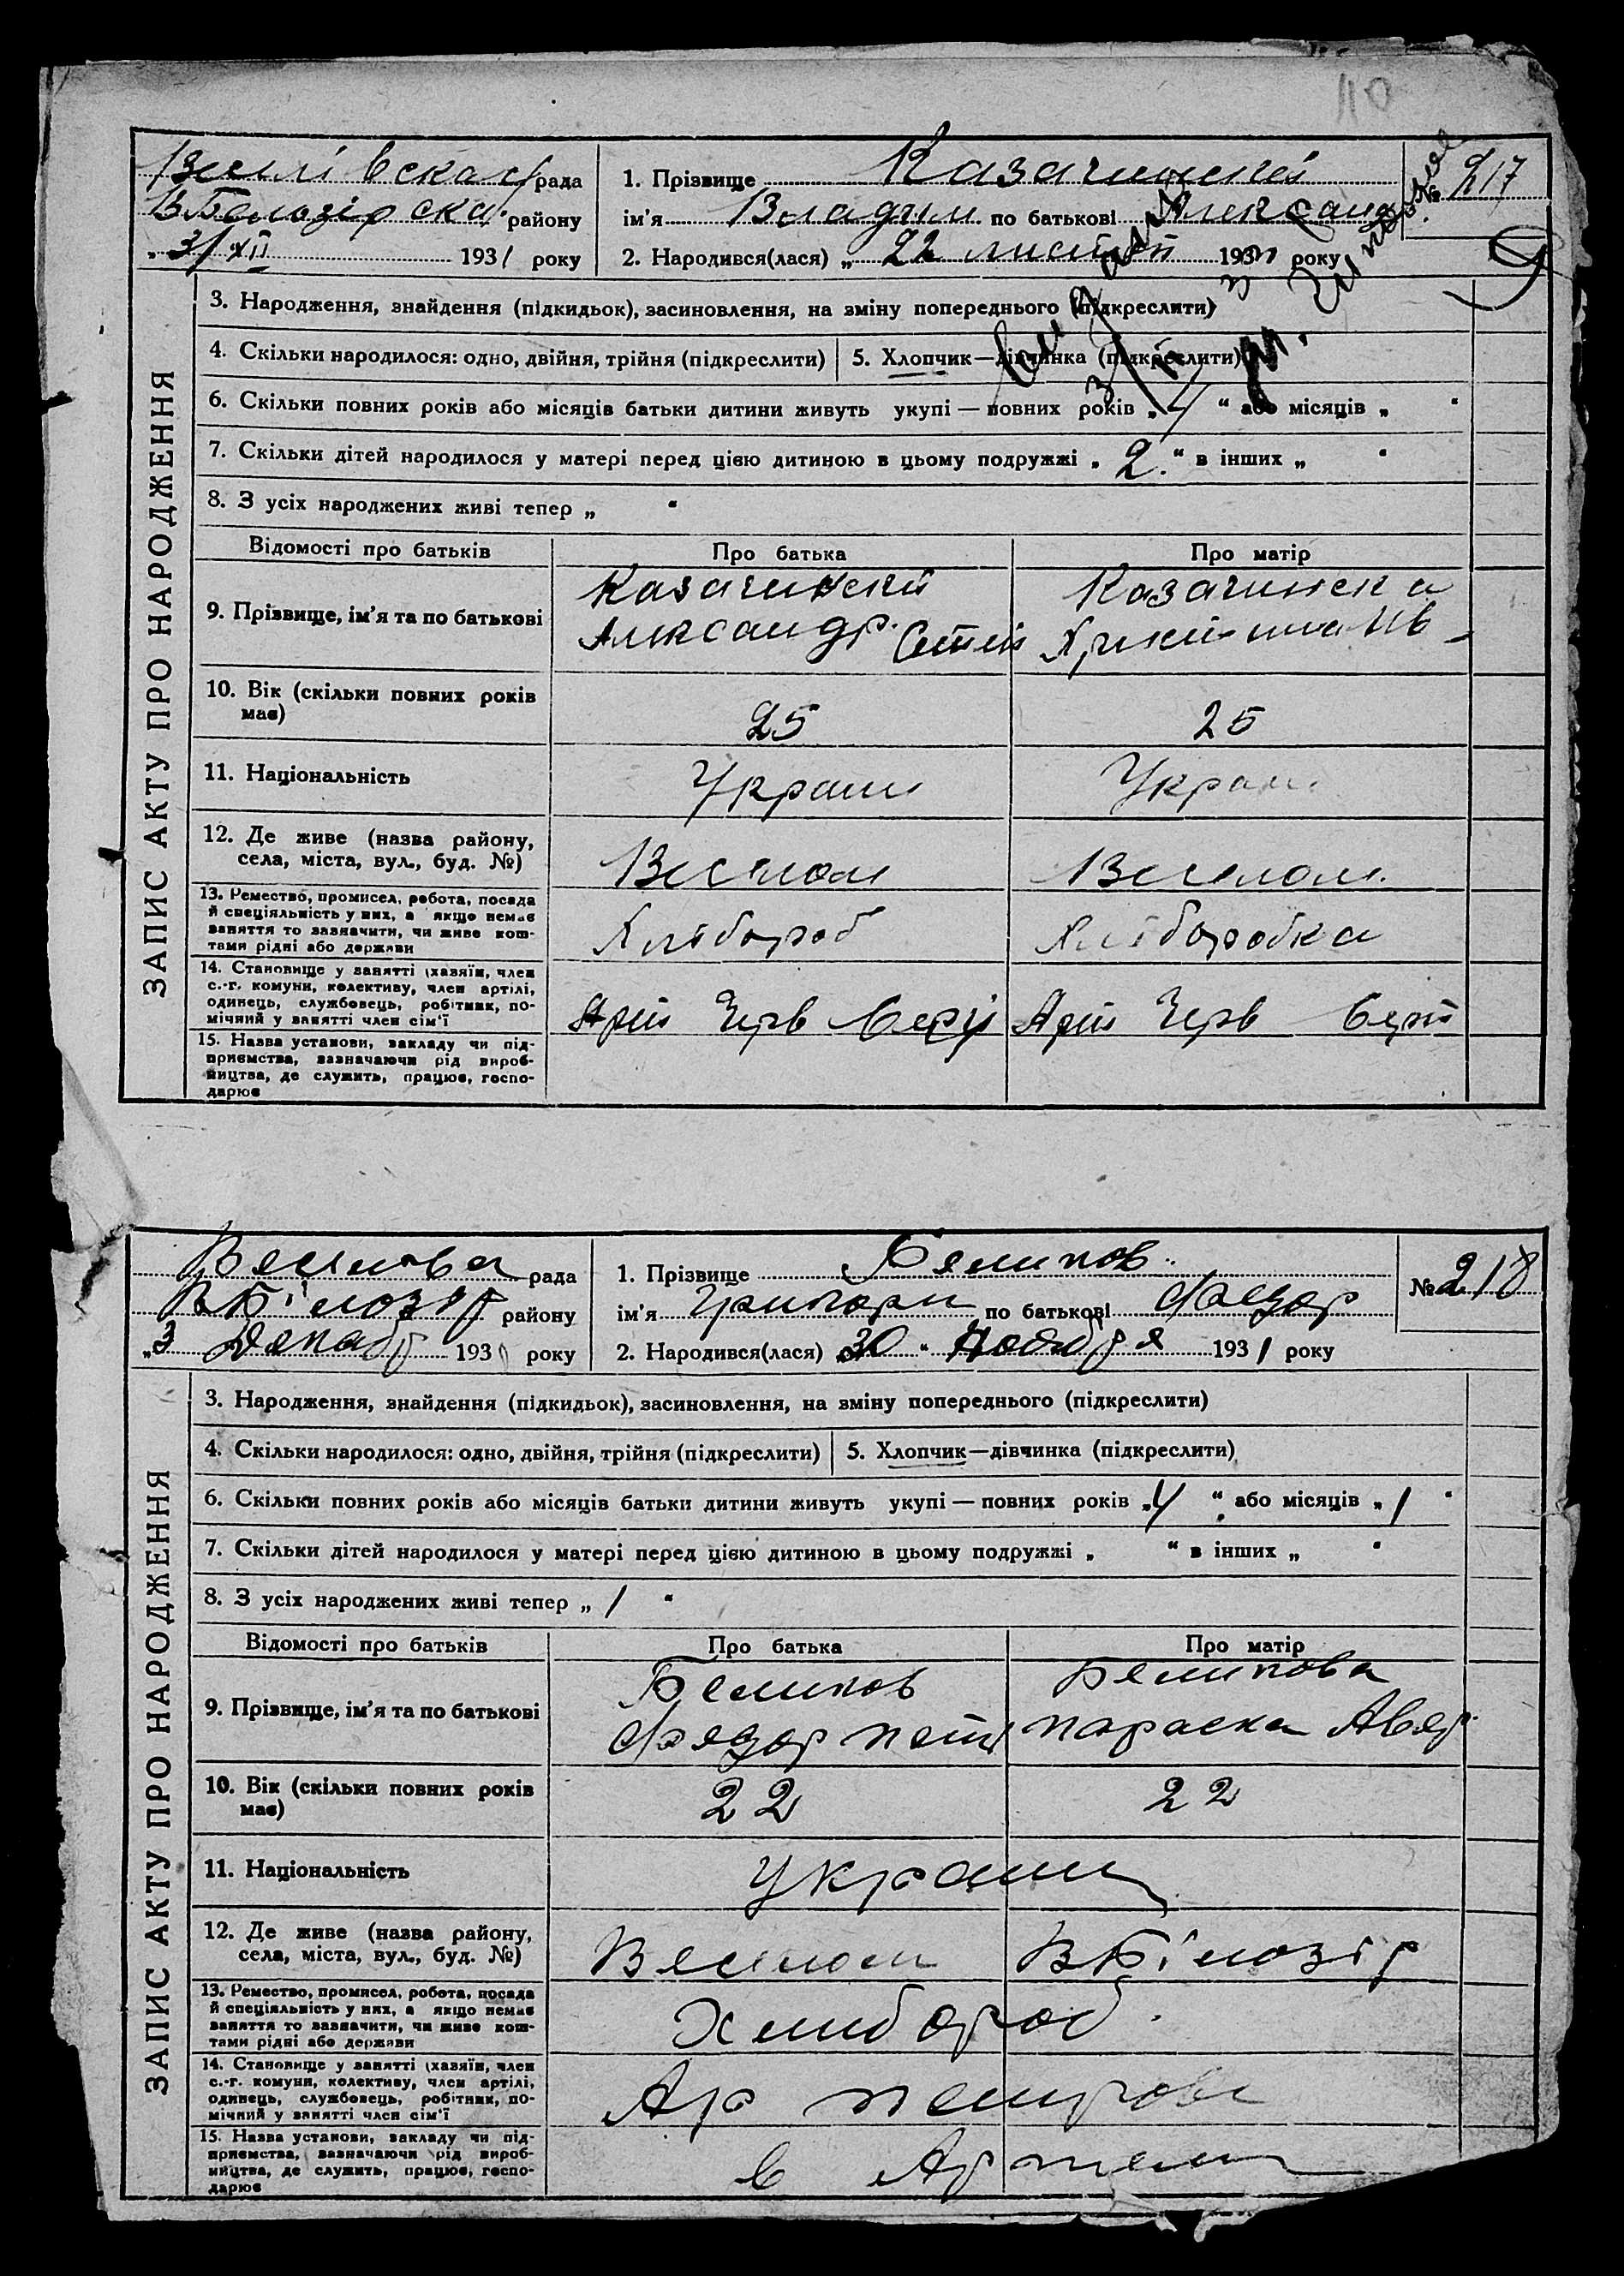 110
рада
району
31/XII 1931 року
1. Прізвище Казачинскій
ім'я Владим по батькові Александ
2. Народився(лася) „ 22 листоп 193 року
№ 217
ЗАПИС АКТУ ПРО НАРОДЖЕННЯ
3. Народження, знайдення (підкидьок), засиновлення, на зміну попереднього (підкреслити)
4. Скільки народилося: одно, двійня, трійня (підкреслити)
5. Хлопчик—дівчинка (підкреслити)
6. Скільки повних років або місяців батьки дитини живуть укупі — повних років „ 4 “ або місяців „ “
7. Скільки дітей народилося у матері перед цією дитиною в цьому подружжі „ 2. “ в інших „ “
8. З усіх народжених живі тепер „ “
Відомості про батьків
Про батька
Про матір
9. Прізвище, ім'я та по батькові
Казачинскй
Александр.
Казачинска
10. Вік (скільки повних років
має)
25
25
11. Національність
Украин
Украин
12. Де живе (назва району,
села, міста, вул., буд. №)
Веселом
Веселом.
13. Ремество, промисел, робота, посада
й спеціяльність у них, а якщо немає
заняття то зазначити, чи живе кош-
тами рідні або держави
Хлібороб
Хліборобка
14. Становище у занятті (хазяїн, член
с.-г. комуни, колективу, член артілі,
одинець, службовець, робітник, по-
мічний у занятті член сім'ї
Черв
Черв
15. Назва установи, закладу чи під-
приємства, зазначаючи рід вироб-
ництва, де служить, працює, госпо-
дарює
рада
В Білозір району
„3 Декабр 193 року
1. Прізвище Беликов
ім'я Григори по батькові Федор
2. Народився(лася) „30“ Ноября 1931 року
№ 218
ЗАПИС АКТУ ПРО НАРОДЖЕННЯ
3. Народження, знайдення (підкидьок), засиновлення, на зміну попереднього (підкреслити)
4. Скільки народилося: одно, двійня, трійня (підкреслити)
5. Хлопчик—дівчинка (підкреслити)
6. Скільки повних років або місяців батьки дитини живуть укупі — повних років „4 “ або місяців „ 1 “
7. Скільки дітей народилося у матері перед цією дитиною в цьому подружжі „ “ в інших „ “
8. З усіх народжених живі тепер „ 1 “
Відомості про батьків
Про батька
Про матір
9. Прізвище, ім'я та по батькові
Беликов
Федор Петр
Беликова
Параска Авер.
10. Вік (скільки повних років
має)
22
22
11. Національність
Украин
12. Де живе (назва району,
села, міста, вул., буд. №)
Веселом
В Білозір
13. Ремество, промисел, робота, посада
й спеціяльність у них, а якщо немає
заняття то зазначити, чи живе кош-
тами рідні або держави
Хлибороб.
14. Становище у занятті (хазяїн, член
с.-г. комуни, колективу, член артілі,
одинець, службовець, робітник, по-
мічний у занятті член сім'ї
Ар Петров
15. Назва установи, закладу чи під-
приємства, зазначаючи рід вироб-
ництва, де служить, працює, госпо-
дарює
в Артели